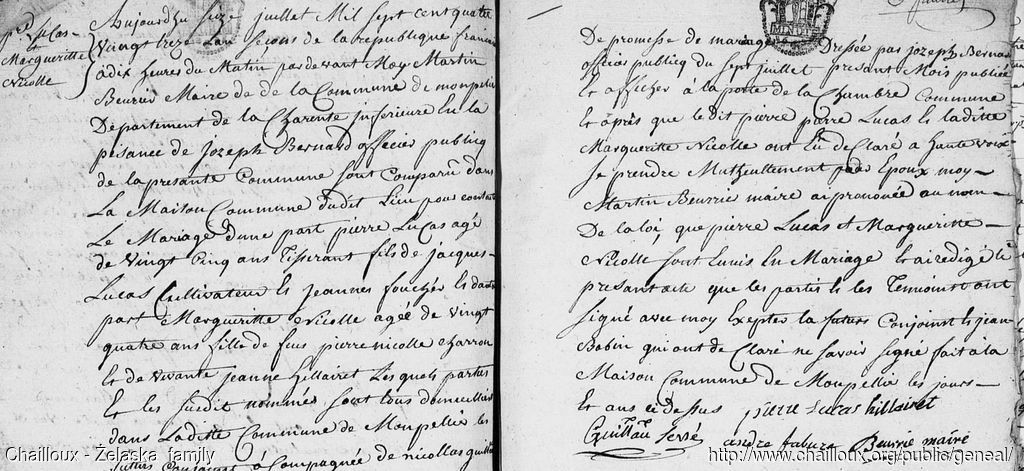 pre Lucas
Margueritte
Nicolle
Aujourdhu seze juillet Mil sept cent quatre
Vingt treze Lan Second de la republique francai
a dix heures du Matin par devant Moy Martin
Beurrié Maire de de la Commune de monpelie
Departement de la Charente inferieure En la
presance de Jozeph Bernard officier publicq
de la presante Commune sont Comparû dans
La Maison Commune dudit Lieu pour contracté
Le Mariage dune part pierre Lucas agé
de Vingt Cinq ans Tisserant fils de jacques
Lucas Cultivateur Et jeannes foucher Et dautre
part Margueritte Nicolle agée de Vingt
quatre ans fille de feus pierre nicolle charron
Et de Vivante jeanne hillairet Les quels parties
Et les Susdit nommés sont tous domicillés
dans Laditte Commune de Monpellier les
futurs Conjoints a Compagnée de nicollas guittau
De promesse de mariage Dressée par Jozeph Bernard
officier publicq du Sept juillet presant Mois publiée
Et afficher à la porte de la Chambre Commune
Et après que ledit pierre Lucas Et laditte
Margueritte Nicolle ont Eu declaré a haute voix
Se prendre Mutuellement pour Epoux moy
Martin Beurrié maire ai prononcée au nom
De la loi, que pierre Lucas et Margueritte
Nicolle sont Eunis En Mariage Et ai redigé le
presant acte que les partis Et les Temoins ont
signé avec moy Exeptés la futurs Conjoinst Et jean
Bobin qui ont de Claré ne savoir signé fait à la
Maison Commune de Monpellier les jours
Et ans ci dessus pierre Lucas hillairet
Guittau Beurrié maire
Chailloux - Zelaska family
http://www.chailloux.org/public/geneal/